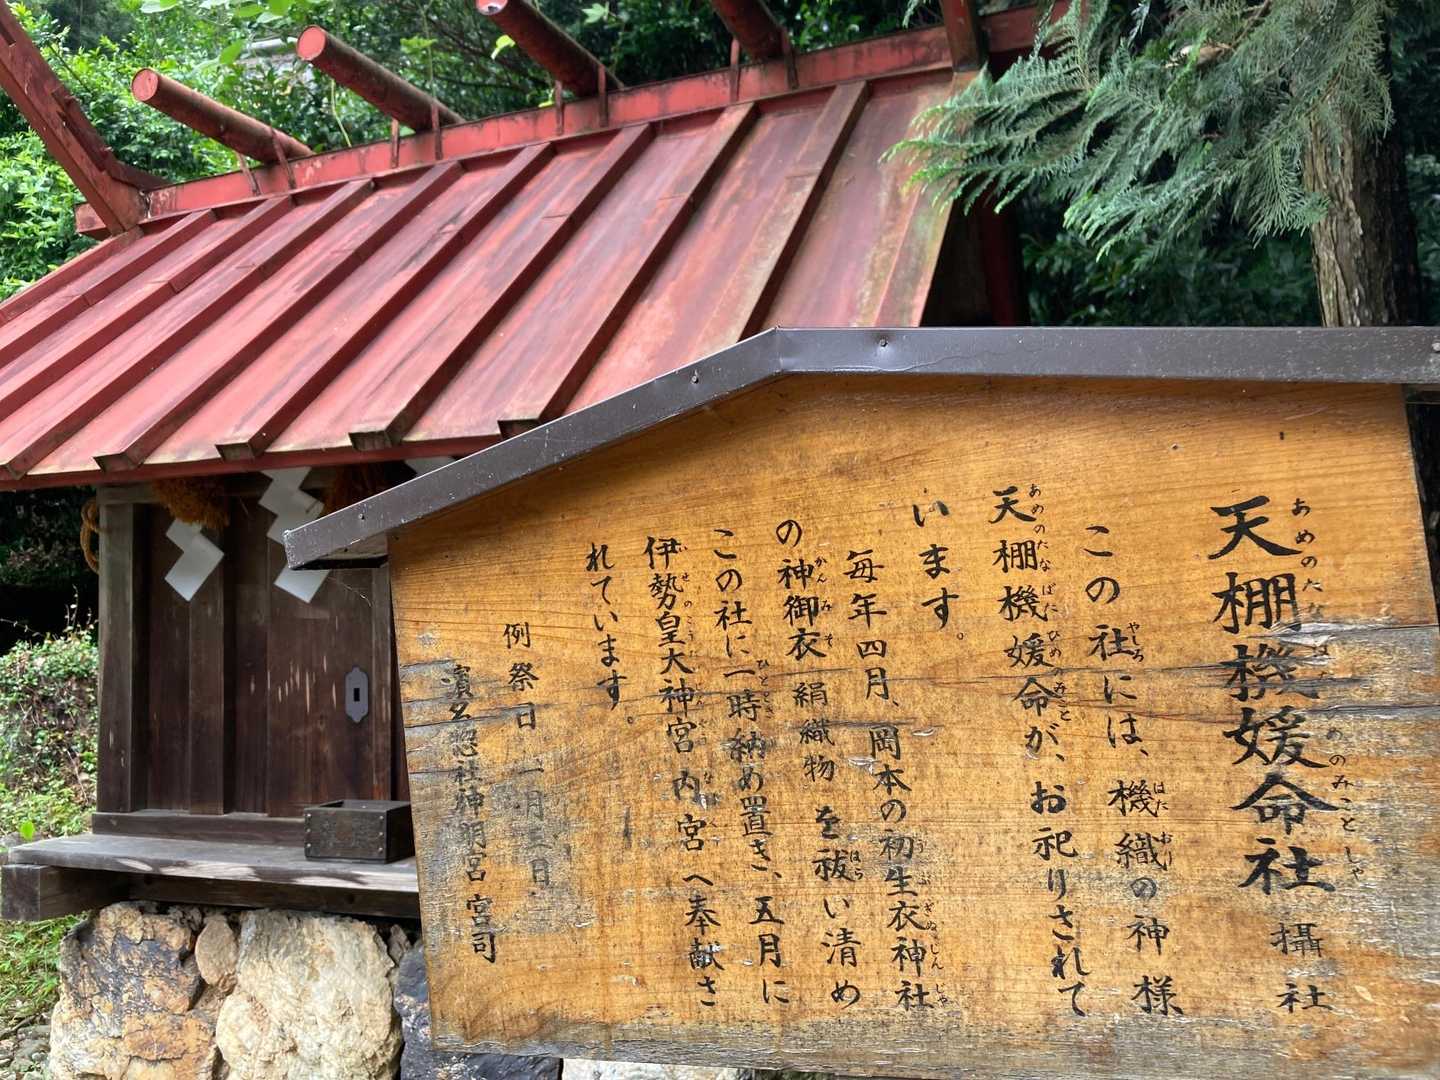 天棚機媛命社 攝社
この社には、機織の神様
天棚機媛命が、お祀りされて
います。
毎年四月、岡本の初生衣神社
の神御衣絹織物を祓い清め
この社に一時納め置き、五月に
伊勢皇大神宮内宮へ奉献さ
れています。
例祭日 月 日
濱名惣社神明宮 宮司